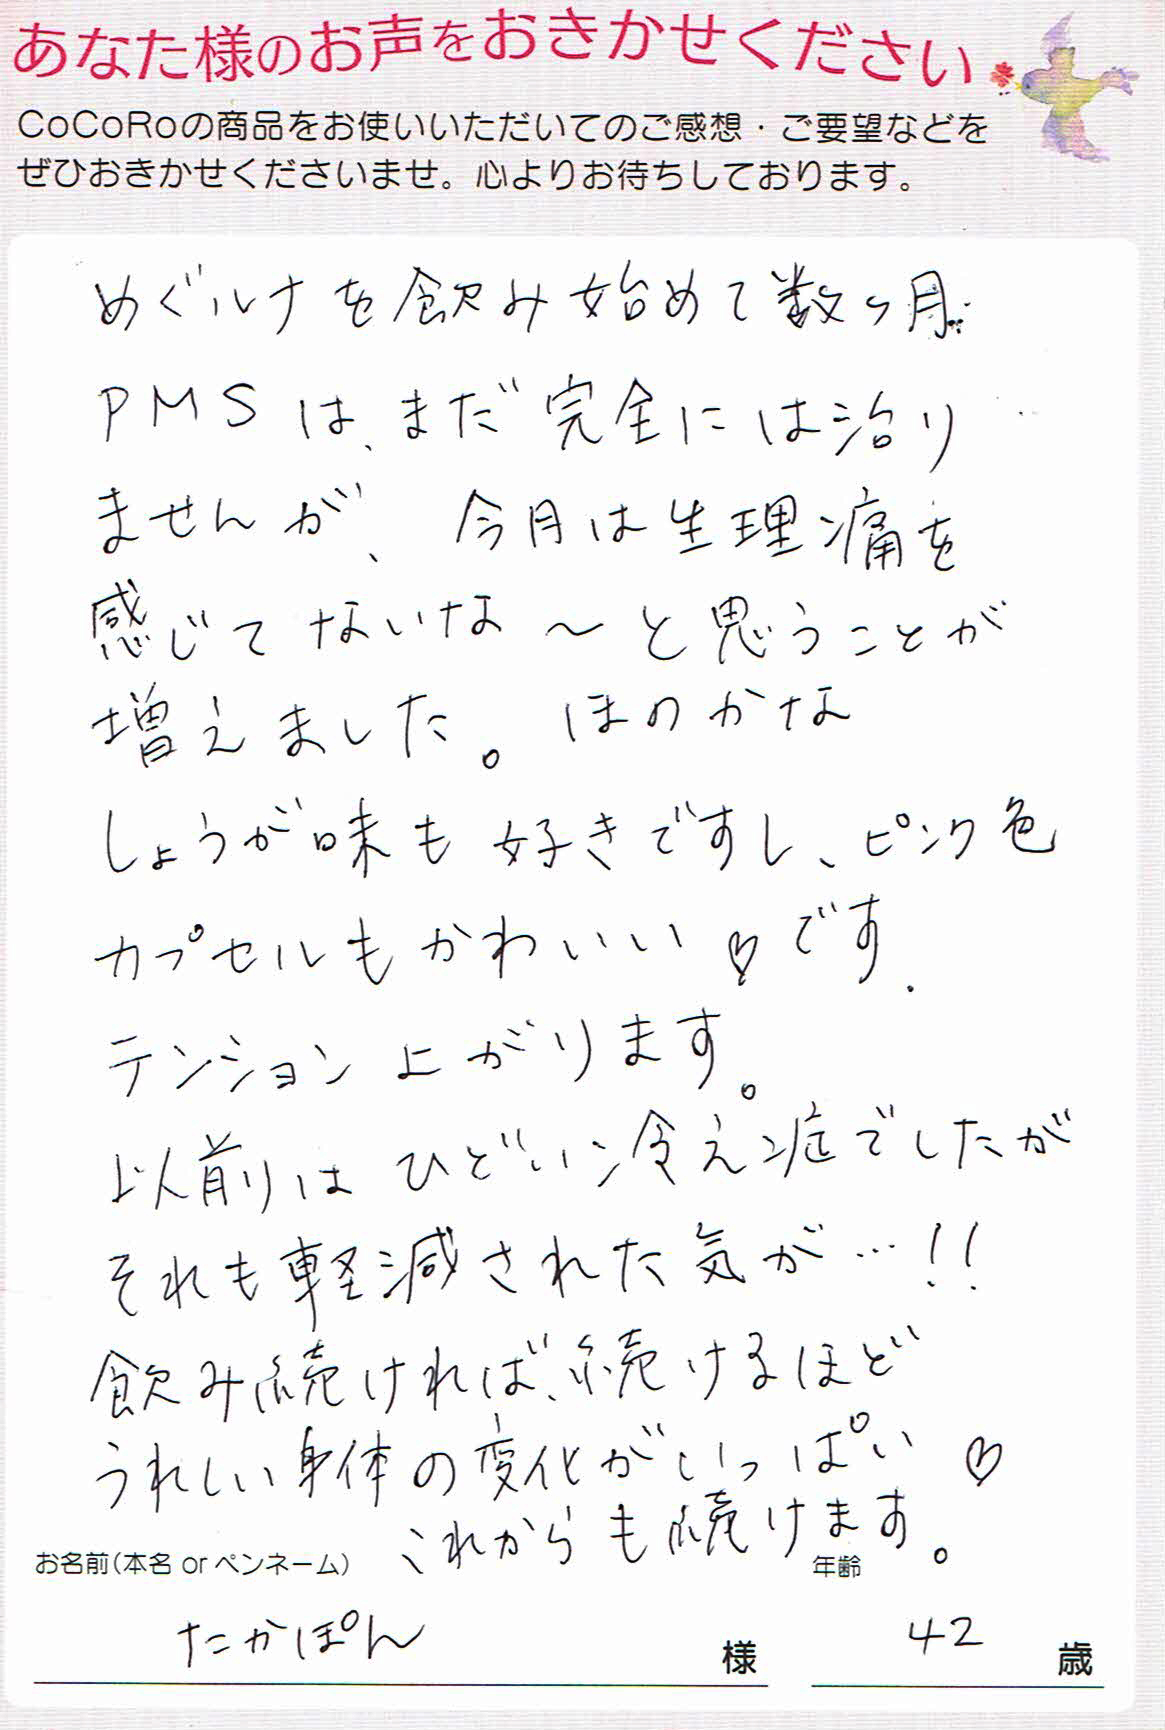 あなた様のお声をおきかせください
CoCoRoの商品をお使いいただいてのご感想・ご要望などを
ぜひおきかせくださいませ。心よりお待ちしております。
めぐルナを飲み始めて数ヶ月.
PMSは、まだ完全には治り
ませんが、今月は生理痛を
感じてないな〜と思うことが
増えました。ほのかな
しょうが味も好きですし、ピンク色
カプセルもかわいい♡です.
テンション上がります。
以前はひどい冷え症でしたが
それも軽減された気が…!!
飲み続ければ、続けるほど
うれしい身体の変化がいっぱい♡
これからも続けます。
お名前(本名 or ペンネーム) 年齢
たかぽん 様 42 歳